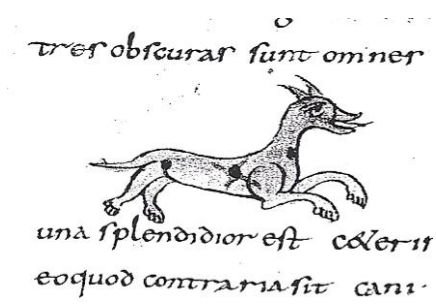 tres obscuras sunt omnes
una splendidior est cȩteris
eoquod contraria sit cani·